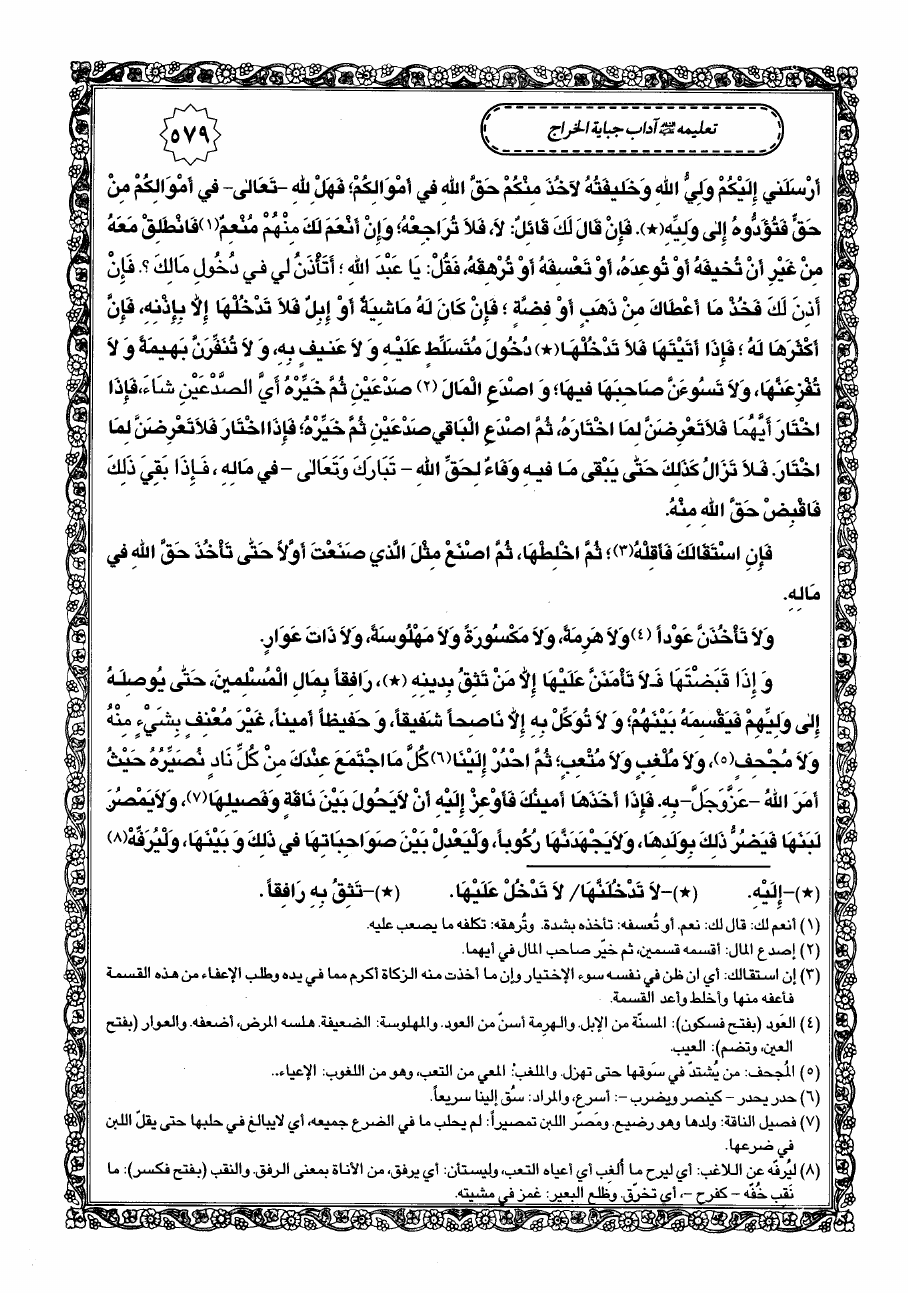 تعليمه عليه السلام آداب جباية الخراج
٥٧٩
أَرْسَلَني إِلَيْكُمْ وَلِيُّ اللهِ وَخَليفَتُهُ لآخُذَ مِنْكُمْ حَقَّ اللهِ في أَمْوَالِكُمْ؛ فَهَلْ لِلّهِ -تَعَالى- في أَمْوَالِكُمْ مِنْ
حَقٍّ فَتُؤَدُّوهُ إِلى وَلِيِّهِ(★). فَإِنْ قَالَ لَكَ قَائِلٌ: لاَ، فَلاَ تُرَاجِعْهُ؛ وَإِنْ أَنْعَمَ لَكَ مِنْهُمْ مُنْعِمٌ(١)فَانْطَلِقْ مَعَهُ
مِنْ غَيْرِ أَنْ تُخيفَهُ أَوْ تُوعِدَهُ، أَوْ تَعْسفَهُ أَوْ تُرْهِقَهُ، فَقُلْ: يَا عَبْدَ اللهِ ؛ أَتَأْذَنُ لي في دُخُولِ مَالِكَ ؟. فَإِنْ
أَذِنَ لَكَ فَخُذْ مَا أَعْطَاكَ مِنْ ذَهَبٍ أَوْ فِضَّةٍ ؛ فَإِنْ كَانَ لَهُ مَاشِيَةٌ أَوْ إِبِلٌ فَلاَ تَدْخُلْهَا إِلاَّ بِإِذْنِهِ، فَإِنَّ
أَكْثَرَهَا لَهُ ؛ فَإِذَا أَتَيْتَهَا فَلاَ تَدْخُلْهَا(★)دُخُولَ مُتَسَلِّطٍ عَلَيْهِ وَ لاَ عَنيفٍ بِهِ، وَ لاَ تُنَفِّرَنَّ بَهيمَةً وَ لاَ
تُفْزِعَنَّهَا، وَلاَ تَسُوءَنَّ صَاحِبَهَا فيهَا؛ وَ اصْدَعِ الْمَالَ (٢) صَدْعَيْنِ ثُمَّ خَيِّرْهُ أَيَّ الصَّدْعَيْنِ شَاءَ،فَإِذَا
اخْتَارَ أَيَّهُمَا فَلاَتَعْرِضَنَّ لِمَا اخْتَارَهُ، ثُمَّ اصْدَعِ الْبَاقِيَ صَدْعَيْنِ ثُمَّ خَيِّرْهُ؛ فَإِذَا اخْتَارَ فَلاَتَعْرِضَنَّ لِمَا
اخْتَارَ. فَلاَ تَزَالُ كَذَلِكَ حَتّى يَبْقى مَا فيهِ وَفَاءٌ لِحَقِّ اللهِ - تَبَارَكَ وَتَعَالى - في مَالِهِ ، فَإِذَا بَقِيَ ذَلِكَ
فَاقْبِضْ حَقَّ اللهِ مِنْهُ.
فَإِنِ اسْتَقَالَكَ فَأَقِلْهُ(٣)؛ ثُمَّ اخْلِطْهَا، ثُمَّ اصْنَعْ مِثْلَ الَّذي صَنَعْتَ أَوَّلاً حَتّى تَأْخُذَ حَقَّ اللهِ في
مَالِهِ.
وَلاَ تَأْخُذَنَّ عَوْداً (٤)وَلاَ هَرِمَةً، وَلاَ مَكْسُورَةً وَلاَ مَهْلُوسَةً، وَلاَ ذَاتَ عَوَارٍ.
وَ إِذَا قَبَضْتَهَا فَلاَ تَأْمَنَنَّ عَلَيْهَا إِلاَّ مَنْ تَثِقُ بِدينِهِ (★)، رَافِقاً بِمَالِ الْمُسْلِمينَ، حَتّى يُوصِلَهُ
إِلى وَلِيِّهِمْ فَيَقْسِمَهُ بَيْنَهُمْ؛ وَ لاَ تُوَكِّلْ بِهِ إِلاَّ نَاصِحاً شَفيقاً، وَ حَفيظاً أَميناً، غَيْرَ مُعْنِفٍ بِشَيْءٍ مِنْهُ
وَلاَ مُجْحِفٍ(٥)، وَلاَ مُلْغِبٍ وَلاَ مُتْعِبٍ؛ ثُمَّ احْدُرْ إِلَيْنَا(٦)كُلَّ مَا اجْتَمَعَ عِنْدَكَ مِنْ كُلِّ نَادٍ نُصَيِّرْهُ حَيْثُ
أَمَرَ اللهُ -عَزَّوَجَلَّ-بِهِ. فَإِذَا أَخَذَهَا أَمينُكَ فَأَوْعِزْ إِلَيْهِ أَنْ لاَيَحُولَ بَيْنَ نَاقَةٍ وَفَصيلِهَا(٧)، وَلاَيَمْصُرَ
لَبَنَهَا فَيَضُرُّ ذَلِكَ بِوَلَدِهَا، وَلاَيَجْهَدَنَّهَا رُكُوباً، وَلْيَعْدِلْ بَيْنَ صَوَاحِبَاتِهَا في ذَلِكَ وَ بَيْنَهَا، وَلْيُرَفِّهْ(٨)
(★)-إِلَيْهِ. (★)-لاَ تَدْخُلَنَّهَا/ لاَ تَدْخُلْ عَلَيْهَا. (★)-تَثِقُ بِهِ رَافِقاً.
(١) أنعم لك: قال لك: نعم. أو تُعسفه: تأخذه بشدة. وتُرهقه: تكلفه ما يصعب عليه.
(٢) إصدع المال: أقسمه قسمين، ثم خيّر صاحب المال في أيهما.
(٣) إن استقالك: أي ان ظن في نفسه سوء الإختيار وإن ما أخذت منه الزكاة أكرم مما في يده وطلب الإعفاء من هذه القسمة
فأعفه منها وأخلط وأعد القسمة.
(٤) العَود (بفتح فسكون): المسنّة من الإبل. والهرِمة أسنّ من العود. والمهلوسة: الضعيفة. هلسه المرض، أضعفه. والعوار (بفتح
العين، وتضم): العيب.
(٥) المُجحف: من يُشتدّ في سَوقها حتى تهزل. والملغب: المعي من التعب، وهو من اللغوب: الإعياء..
(٦) حدر يحدر - كينصر ويضرب -: أسرع، والمراد: سُق إلينا سريعاً.
(٧) فصيل الناقة: ولدها وهو رضيع. ومَصر اللبن تمصيراً: لم يحلب ما في الضرع جميعه، أي لايبالغ في حلبها حتى يقلّ اللبن
في ضرعها.
(٨) ليُرفّه عن اللاغب: أي ليرح ما ألغب أي أعياه التعب، وليستأن: أي يرفق، من الأناة بمعنى الرفق. والنقب (بفتح فكسر): ما
نَقِب خُفّه - كفرح -، أي تخرّق. وظلع البعير: غمز في مشيته.